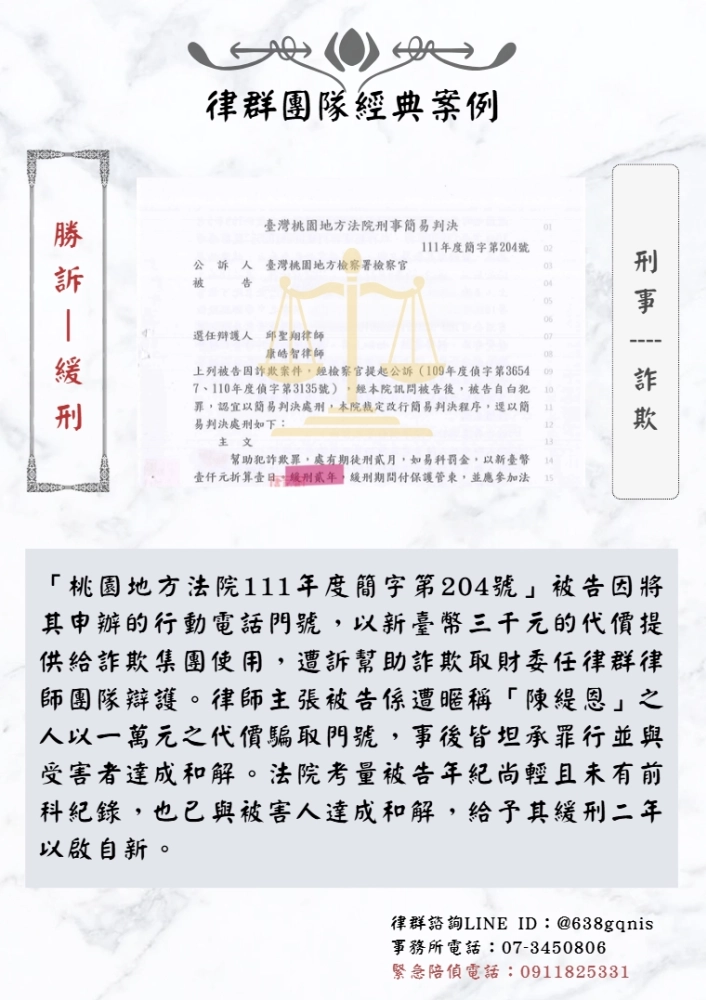 律群團隊經典案例
勝訴｜緩刑
臺灣桃園地方法院刑事簡易判決
111年度簡字第204號
公訴人 臺灣桃園地方檢察署檢察官
被告
選任辯護人 邱聖翔律師
康皓智律師
上列被告因詐欺案件，經檢察官提起公訴（109年度偵字第3654
7、110年度偵字第3135號），經本院訊問被告後，被告自白犯
罪，認宜以簡易判決處刑，本院裁定改行簡易判決程序，逕以簡
易判決處刑如下：
主文
幫助犯詐欺罪，處有期徒刑貳月，如易科罰金，以新臺幣
壹仟元折算壹日。緩刑貳年，緩刑期間付保護管束，並應參加法
01
02
03
04
05
06
07
08
09
10
11
12
13
14
15
刑事----詐欺
「桃園地方法院111年度簡字第204號」被告因將
其申辦的行動電話門號，以新臺幣三千元的代價提
供給詐欺集團使用，遭訴幫助詐欺取財委任律群律
師團隊辯護。律師主張被告係遭暱稱「陳緹恩」之
人以一萬元之代價騙取門號，事後皆坦承罪行並與
受害者達成和解。法院考量被告年紀尚輕且未有前
科紀錄，也已與被害人達成和解，給予其緩刑二年
以啟自新。
律群諮詢LINE ID：@638gqnis
事務所電話：07-3450806
緊急陪偵電話：0911825331